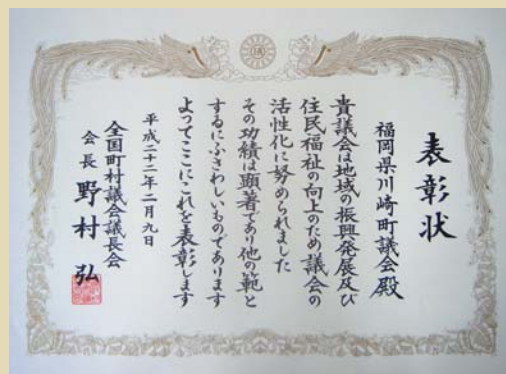 表彰状
福岡県川崎町議会殿
貴議会は地域の振興発展及び
住民福祉の向上のため議会の
活性化に努められました
その功績は顕著であり他の範と
するにふさわしいものであります
よってここにこれを表彰します
平成二十二年二月九日
全国町村議会議長会
会長 野村弘